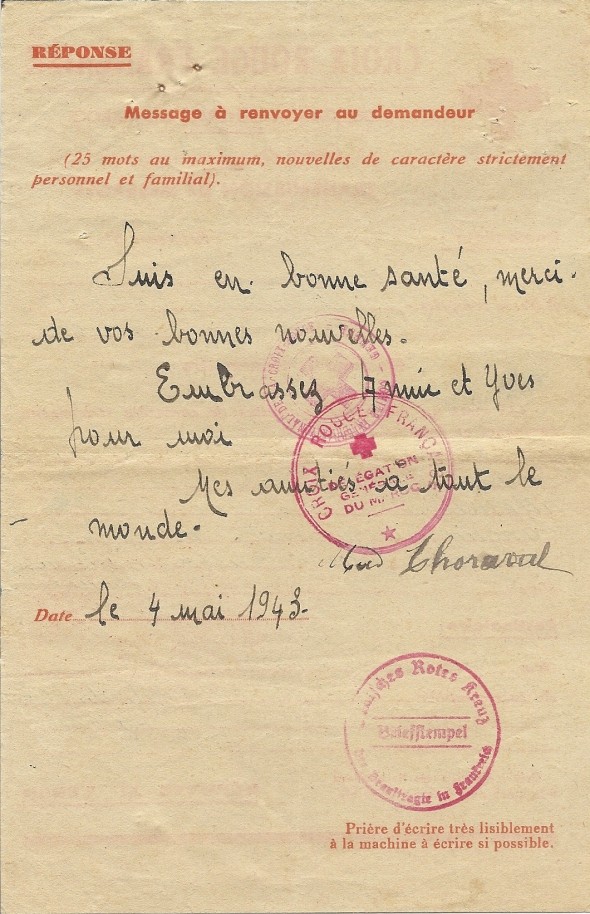 RÉPONSE
Message à renvoyer au demandeur
(25 mots au maximum, nouvelles de caractère strictement
personnel et familial).
Suis en bonne santé, merci
de vos bonnes nouvelles.
Embrassez Annie et Yves
pour moi
Mes amitiés à tout le
monde.
CROIX ROUGE FRANÇAISE
DÉLÉGATION
GÉNÉRALE
DU MAROC
Thoraval
Date le 4 mai 1943.
Rotes Kreuz
Briefstempel
Beauftragte in Frankreich
Prière d'écrire très lisiblement
à la machine à écrire si possible.